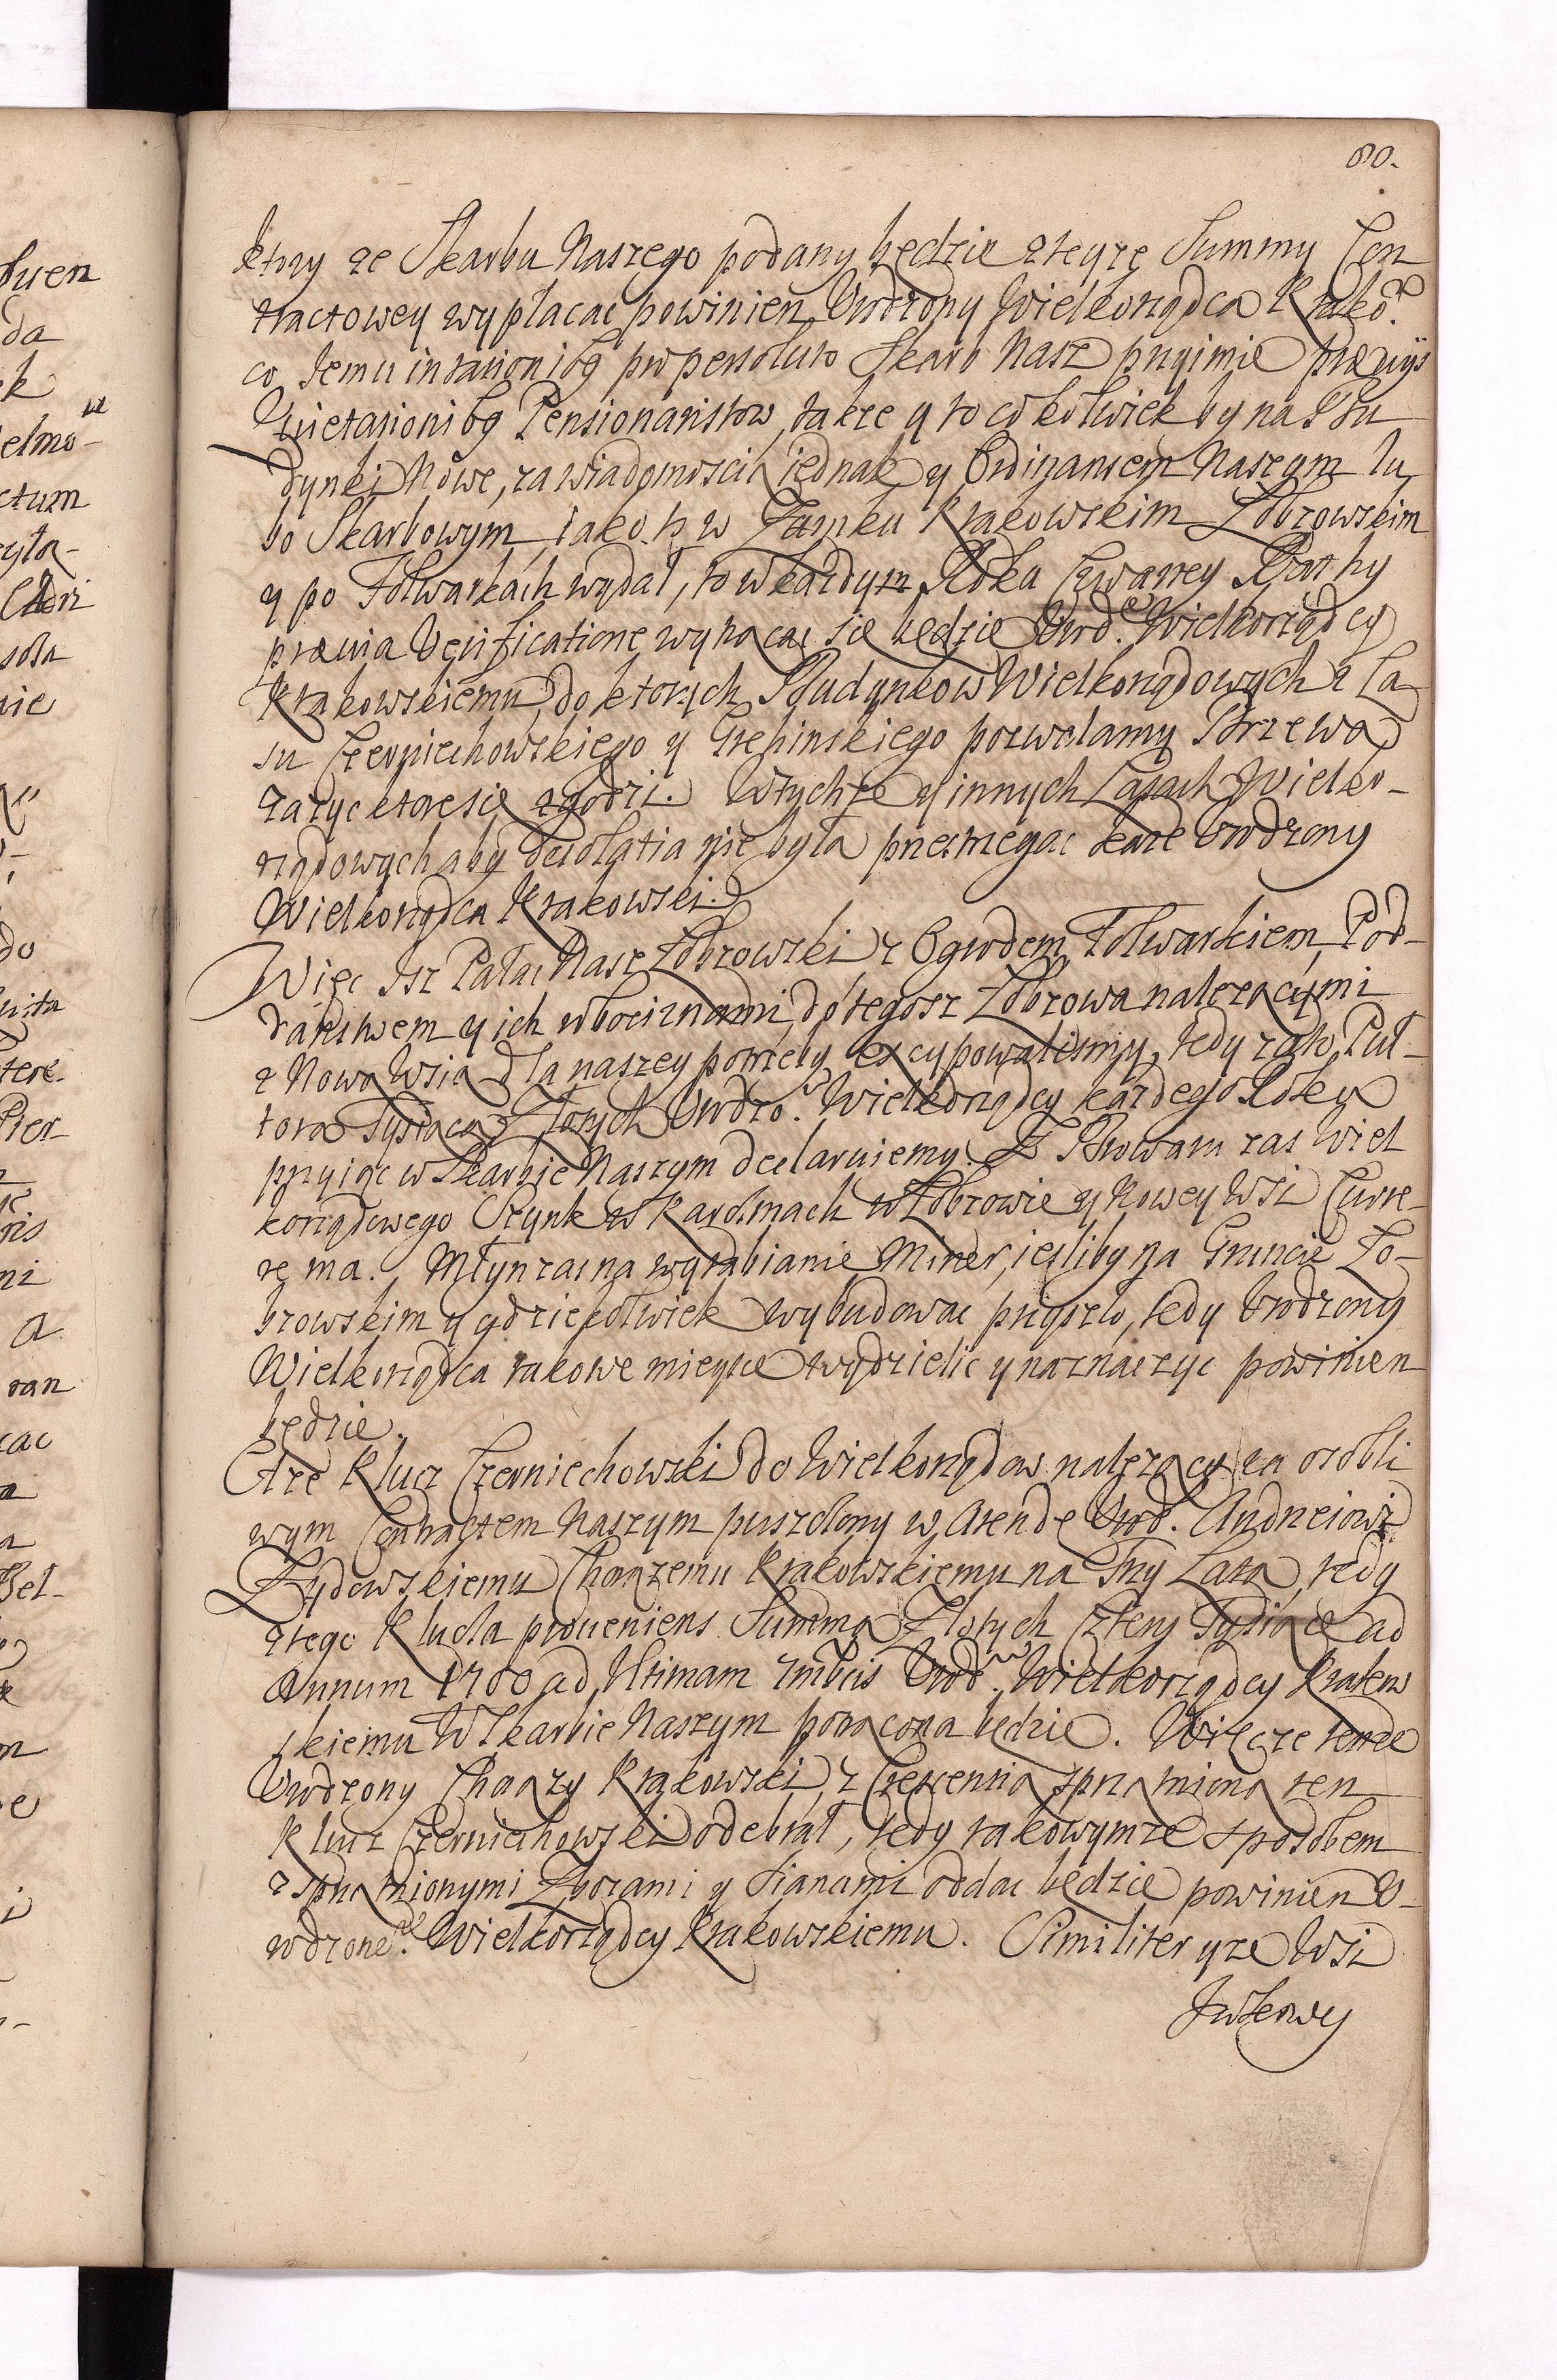 80.
ktory ze Skarbu Naszego podany będzie z teyze Summy Con
tractowey wypłacac powinien Urodzony Wielkorządca Krako.
co Jemu in rationibg pro persoluto Skarb Nasz przyimie præuys
Quietationibg Pensionaristow, takze y to cokolwiek by na Bu
dynki Nowe, za wiadomoscią iednak y Ordinansem Naszym lu
bo Skarbowym, iako to w Zamku Krakowskim Łobzowskim
y po Folwarkach wydał, to w kazdym Roku czwartey Rathy
præuia Verificatione wytrącac się będzie Urod. Wielkorządcy
Krakowskiemu, do ktorych Budynkow Wielkorządowych z La
su Czerniechowskiego y Grebinskiego pozwalamy Drzewa
zazyc ktore się zgodzi. W tychze y innych Lasach Wielko-
rządowych aby desolatia nie była przestrzegac kaze Urodzony
Wielkorządca Krakowski.
Więc Isz Pałac Nasz Łobzowski z Ogrodem, Folwarkiem, Pod-
danstwem y ich robociznami, do tegosz Łobzowa nalezącymi
z Nową Wsią dla naszey potrzeby excypowalismy, tedy za to Puł-
tora Tysiąca Złotych Urodzo. Wielkorządcy kazdego Roku
przyiąc w Skarbie Naszym declaruiemy. Z Browaru zas Wiel
korządowego Szynk w Karczmach w Łobzowie y Nowey Wsi Curre-
re ma. Młyn zas na wyrabianie Miner, iesliby na Gruncie Ło-
bzowskim y gdziekolwiek wybudowac przyszło, tedy Urodzony
Wielkorządca takowe mieysce wydzielic y naznaczyc powinien
będzie.
A ze Klucz Czerniechowski do Wielkorządow nalezący za osobli
wym Contractem Naszym puszczony w Arendę Urod. Andrzeiowi
Zydowskiemu Chorązemu Krakowskiemu na Trzy Lata, tedy
z tego Klucza proueniens Summa Złotych cztery Tysiące ad
Annum 1700 ad Ultimam Julis Urod. Wielkorządcy Krakow
skiemu W Skarbie Naszym potrącona będzie. Więc ze tenze
Urodzony Chorązy Krakowski, z Crescentią y sprzę mioną ten
Klucz Czerniechowski odebrał, tedy takowymze sposobem
z sprzę mionymi Zbozami y Sianami oddac będzie powinien U-
rodzone. Wielkorządcy Krakowskiemu. Similiter y ze Wsi